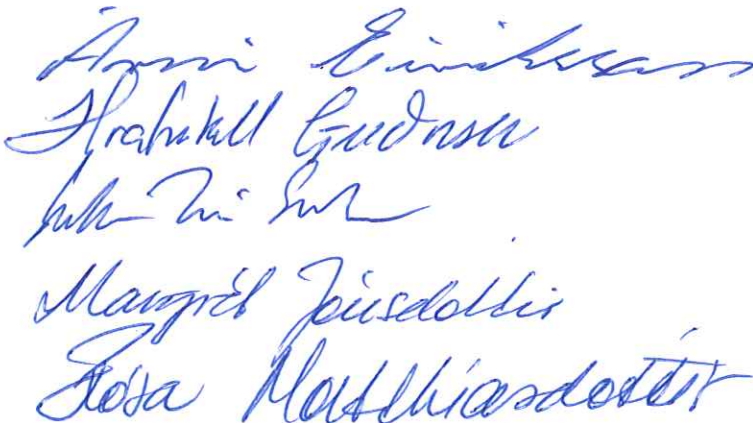 Árni Eiríksson
Hrafnkell Guðnason
Margrét Jónsdóttir
Rósa Matthíasdóttir